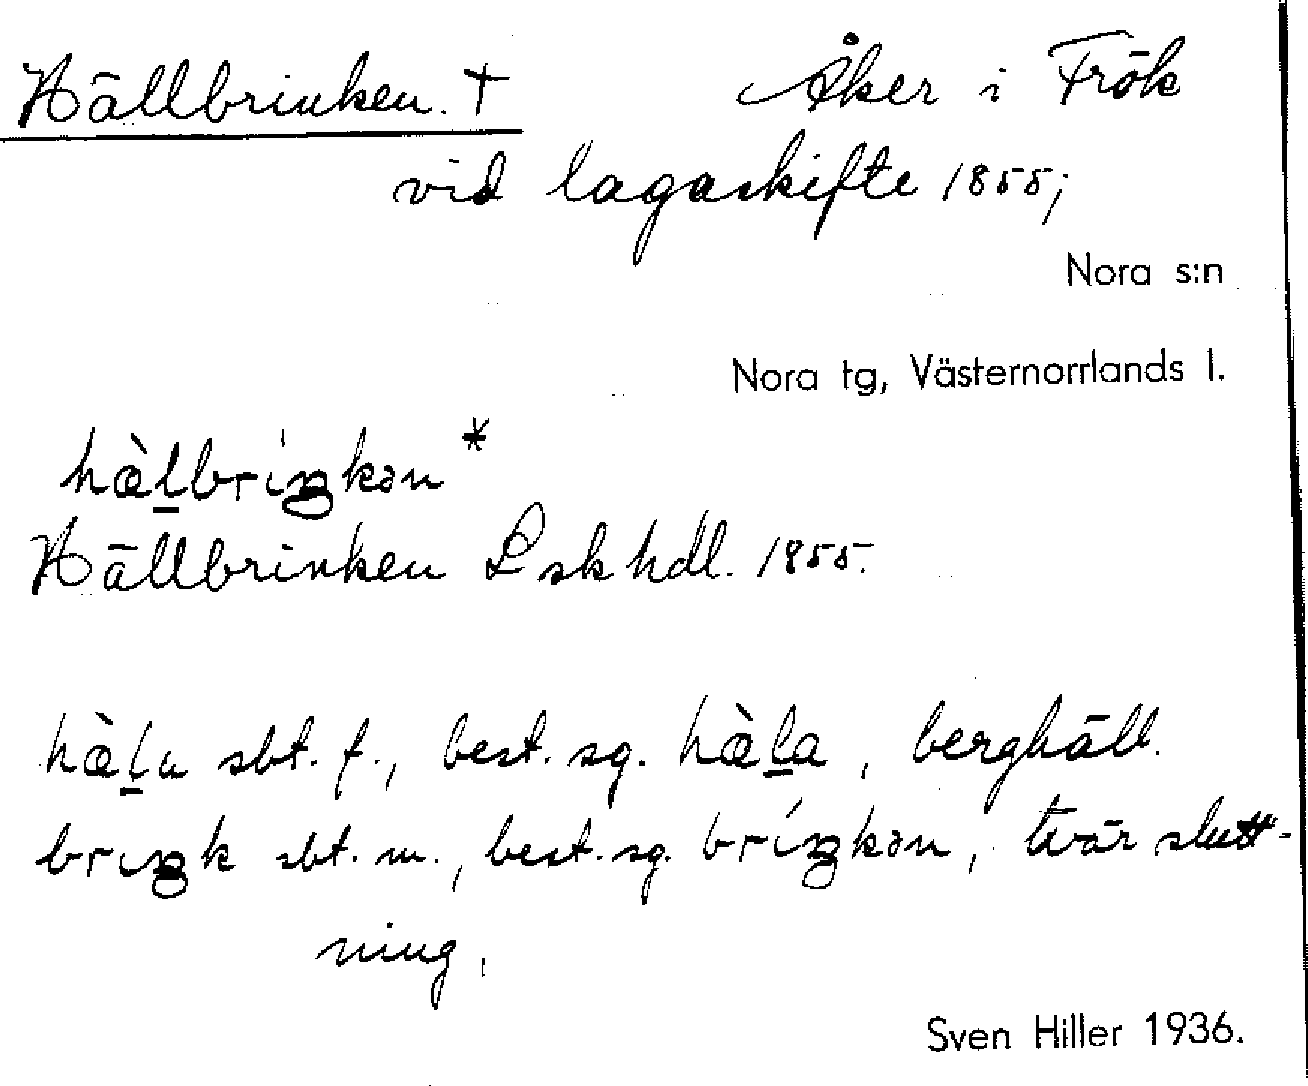 Hällbrinken. † Åker i Frök
vid lagaskifte 1855;
Nora s:n
Nora tg, Västernorrlands l.
hæ̀l̲bríŋkən*
Hällbrinken Lskhdl. 1855.
hæ̀l̲a sbt. f., best. sg. hæ̀l̲a, berghäll.
briŋk sbt. m., best. sg. bríŋkən, tvär slutt-
ning.
Sven Hiller 1936.